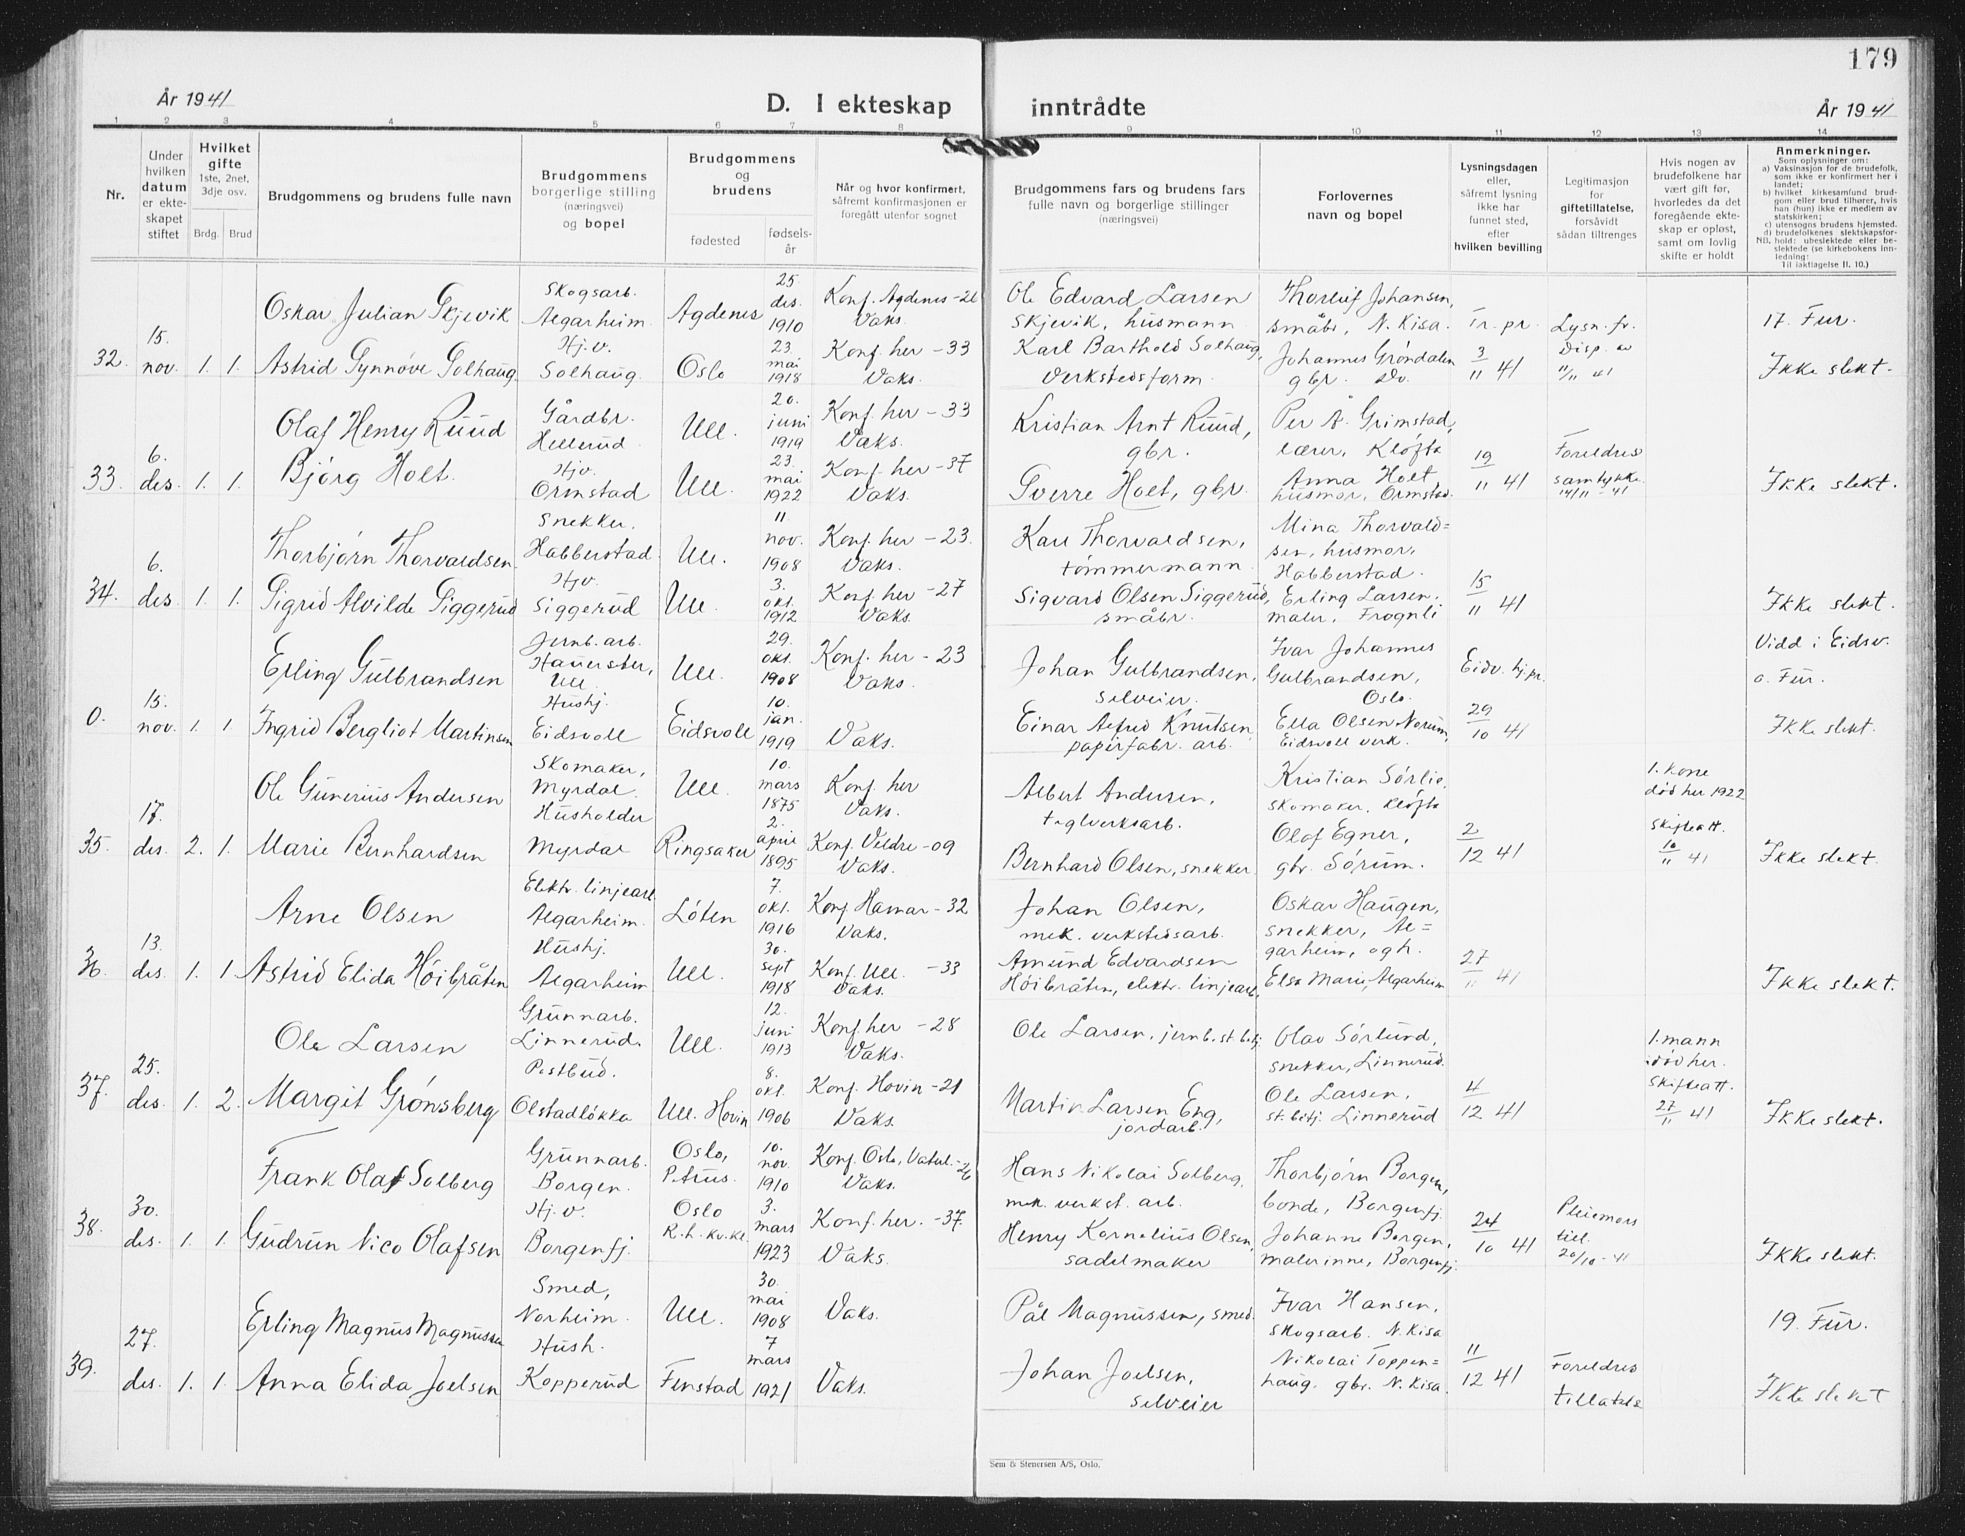 179
År 1941
D. I ekteskap inntrådte
År 1941
1 2 3 4 5 6 7 8 9 10 11 12 13 14
Nr.
Under hvilken datum er ekteskapet stiftet
Hvilket gifte 1ste, 2net, 3dje osv.
Brdg. Brud
Brudgommens og brudens fulle navn
Brudgommens borgerlige stilling (næringsvei) og bopel
Brudgommens og brudens
fødested
fødselsår
Når og hvor konfirmert, såfremt konfirmasjonen er foregått utenfor sognet
Brudgommens fars og brudens fars fulle navn og borgerlige stillinger (næringsvei)
Forlovernes navn og bopel
Lysningsdagen eller, såfremt lysning ikke har funnet sted, efter hvilken bevilling
Legitimasjon for giftetillatelse, forsåvidt sådan tiltrenges
Hvis nogen av brudefolkene har vært gift før, hvorledes da det foregående ekteskap er opløst, samt om lovlig skifte er holdt
Anmerkninger.
Som oplysninger om:
a) Vaksinasjon for de brudefolk, som ikke er konfirmert her i landet;
b) hvilket kirkesamfund brudgom eller brud tilhører, hvis han (hun) ikke er medlem av statskirken;
c) utensogns brudens hjemsted.
d) brudefolkenes slektskapsforhold: ubeslektede eller beslektede (se kirkebokens innledning:
NB.
Til iakttagelse II. 10.)
32. 15. nov. 1. 1.
Oskar Julian Skjevik
Skogsarb. Algarheim.
Agdenes
25. des. 1910
Konf. Agdenes Vaks.
Ole Edvard Larsen Skjevik, husmann
Thorleif Johansen, småbr. N. Kisa.
Tr. pr.
Lysn. fr. Disp. av 11/11 41
17. Fur.
Astrid Synnøve Solhaug
Hj.v. Solhaug.
Oslo
23. mai 1918
Konf. her - 33 Vaks.
Karl Barthold Solhaug, Verkstedsform.
Johannes Grøndalen gbr. Do.
3/11 41
Ikke slekt.
33. 6. des. 1. 1.
Olaf Henry Ruud
Gårdbr. Hellerud
Ull.
20. juni 1919
Konf. her - 33 Vaks.
Kristian Arnt Ruud, gbr.
Per A. Grimstad, lærer, Kløfta
Bjørg Holt.
Hjv. Ormstad
Ull.
23. mai 1922
Konf. her - 37 Vaks.
Sverre Holt, gbr.
Anna Holt husmor, Ormstad.
19/11 41
Foreldres samtykke 14/11 - 41
Ikke slekt.
34. 6. des. 1. 1.
Thorbjørn Thorvaldsen
Snekker. Habberstad.
Ull.
11 nov. 1908
Konf. her - 23. Vaks.
Karl Thorvaldsen, tømmermann
Mina Thorvald= sen, husmor, Habberstad.
Sigrid Alvilde Siggerud
Hjv. Siggerud
Ull.
3. okt. 1912
Konf. her - 27 Vaks.
Sigvard Olsen Siggerud, småbr.
Erling Larsen. maler, Frognli
15/11 41
Ikke slekt.
0. 15. nov. 1. 1
Erling Gulbrandsen
Jernb. arb. Hauerster, Ull.
Ull.
29. okt. 1908
Konf. her - 23 Vaks.
Johan Gulbrandsen, selveier.
Ivar Johannes Gulbrandsen, Oslo.
Vidd i Eidsv. o. Fur.
Ingrid Bergliot Martinsen
Hushj. Eidsvoll
Eidsvoll
10. jan. 1919
Vaks.
Einar Alfred Knutsen, papirfabr. arb.
Ella Olsen Norum, Eidsvoll verk.
29/10 41
Ikke slekt.
35. 17. des. 2. 1.
Ole Gunerius Andersen
Skomaker, Myrdal.
Ull.
10. mars 1875
Konf. her Vaks.
Albert Andersen, teglverksarb.
Kristian Sørlie, skomaker, Kløfta
1. kone død her 1922
Skifteatt. 10/11 41
Marie Bernhardsen
Husholder Myrdal
Ringsaker
2. april 1895
Konf. Veldre - 09 Vaks.
Bernhard Olsen, snekker
Olaf Egner, gbr. Sørum.
2/12 41
Ikke slekt.
36. 13. des. 1. 1
Arne Olsen
Elektr. linjearb. Algarheim.
Løten
7. okt. 1916
Konf. Hamar - 32 Vaks.
Johan Olsen, mek. verkstedsarb.
Oskar Haugen, snekker, Al= garheim, og h.
Astrid Elida Høibråten
Hushj. Algarheim
Ull.
30. sept 1918
Konf. Ull. - 33 Vaks.
Amund Edvardsen Høibråten, elektr. linjearb.
Elsa Marie, Algarheim
27/11 41
Ikke slekt.
37. 25. des. 1. 2.
Ole Larsen
Grunnarb. Linnerud.
Ull.
12. juni 1913
Konf. her - 28 Vaks.
Ole Larsen, jernb. st. betj.
Olav Sørlund, snekker, Linnerud.
1. mann død her.
Skifteatt. 27/11 41
Margit Grønsberg
Postbud. Olstadløkka
Ull. Hovin
8. okt. 1906
Konf. Hovin - 21 Vaks.
Martin Larsen Eng, jordarb.
Ole Larsen, st. betj. Linnerud
4/12 41
Ikke slekt.
38. 30. des. 1. 1.
Frank Olaf Solberg
Grunnarb. Borgen.
Oslo, Petrus.
10. nov. 1910
Konf. Oslo, - 26 Vaks.
Hans Nikolai Solberg, mek. verkst. arb.
Thorbjørn Borgen, bonde, Borgenfj.
Gudrun Nico Olafsen
Hj.v. Borgenfj.
Oslo R.h. kv.kl.
3. mars 1923
Konf. her. - 37. Vaks.
Henry Kornelius Olsen, sadelmaker
Johanne Borgen, malerinne, Borgenfj.
24/10 41
Pleiemors till. 20/10 - 41
Ikke slekt.
39. 27. des. 1. 1.
Erling Magnus Magnussen
Smed, Norheim.
Ull.
30. mai 1908
Vaks.
Pål Magnussen, smed.
Ivar Hansen, skogsarb. N. Kisa
19. Fur.
Anna Elida Joelsen
Hush. Kopperud
Fenstad
7 mars 1921
Vaks.
Johan Joelsen, selveier
Nikolai Toppen= haug. gbr. N. Kisa.
11/12 41
Foreldres tillatelse
Ikke slekt
Sem & Stenersen A/S, Oslo.